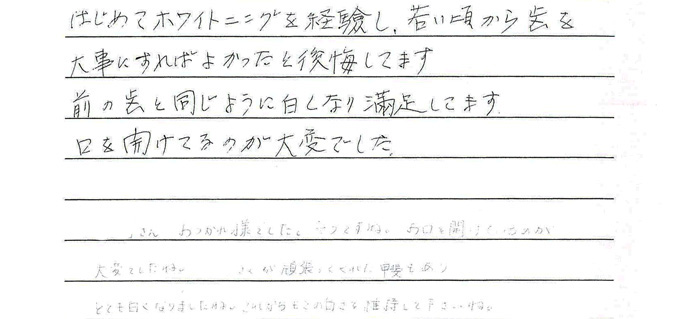 はじめてホワイトニングを経験し、若い頃から歯を
大事にすればよかったと後悔してます
前の歯と同じように白くなり満足してます.
口を開けてるのが大変でした.
さん おつかれ様でした。そうですね。お口を開けているのが
大変でしたね。 さんが頑張ってくれた甲斐もあり
とても白くなりましたね。これからもこの白さを維持して下さいね。